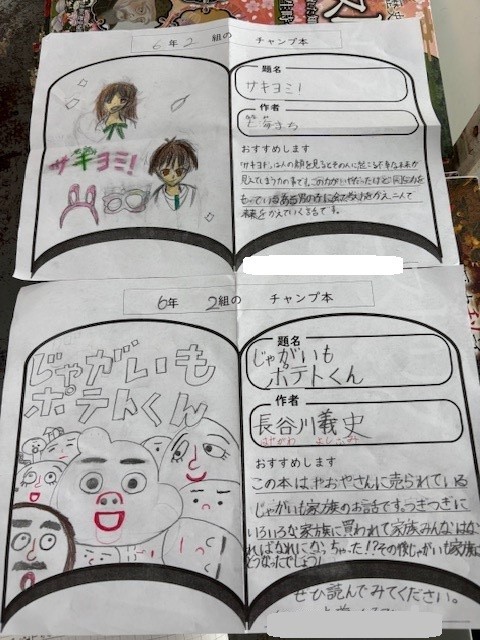 6年 2 組の チャンプ本
サキヨミ!
題名
サキヨミ!
作者
おすすめします
「サキヨミ」は人の顔を見るとその人に起こる不幸な未来が
見えてしまう力の事です。この力がいやだった
もっている
未来をかえていくお話です。
6年 2組の チャンプ本
じゃがいも
ポテトくん
題名
じゃがいも
ポテトくん
作者
長谷川義史
はせがわ よしふみ
おすすめします
この本は、やおやさんに売られている
じゃがいも家族のお話です。つぎつぎに
いろいろな家族に買われて家族みんなはな
ればなれになっちゃった!?その後じゃがいも家族は
どうなったでしょう
ぜひ読んでみてください。